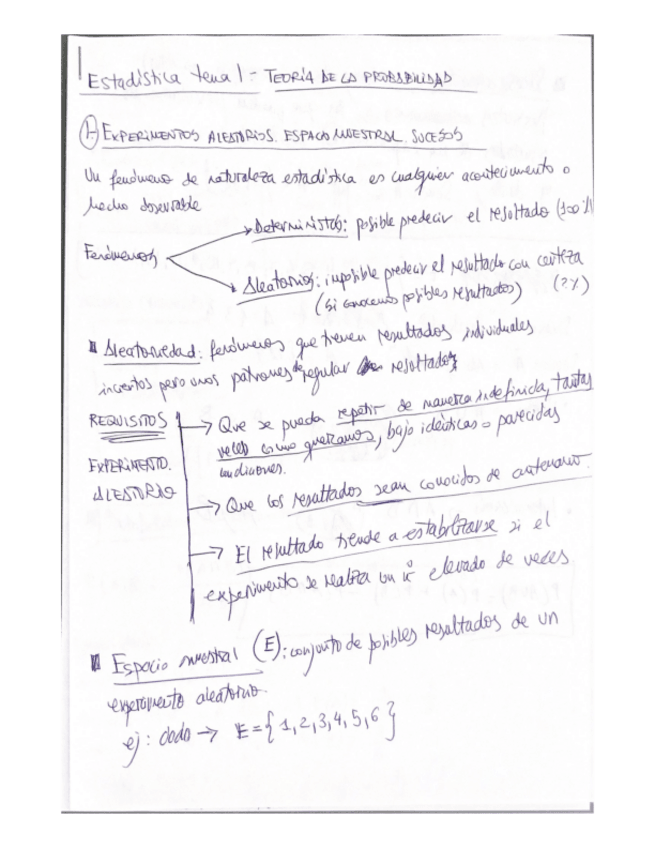 Estadística tema 1 = TEORÍA DE LA PROBABILIDAD
1- EXPERIMENTOS ALEATORIOS. ESPACIO MUESTRAL. SUCESOS
Un fenómeno de naturaleza estadística es cualquier acontecimiento o
hecho observable
Deterministas: posible predecir el resultado (100%)
Fenómenos
Aleatorios: imposible predecir el resultado con certeza
(si conocemos posibles resultados) (?%)
Aleatoriedad: fenómenos que tienen resultados individuales
inciertos pero unos patrones de regular resultados
REQUISITOS
EXPERIMENTO.
ALEATORIO
→ Que se pueda repetir de manera indefinida, tantas
veces como queramos, bajo idénticas o parecidas
condiciones.
→ Que los resultados sean conocidos de antemano.
→ El resultado tiende a estabilizarse si el
experimento se realiza un nº elevado de veces
Espacio muestral (E): conjunto de posibles resultados de un
experimento aleatorio.
ej: dado → E={1,2,3,4,5,6}